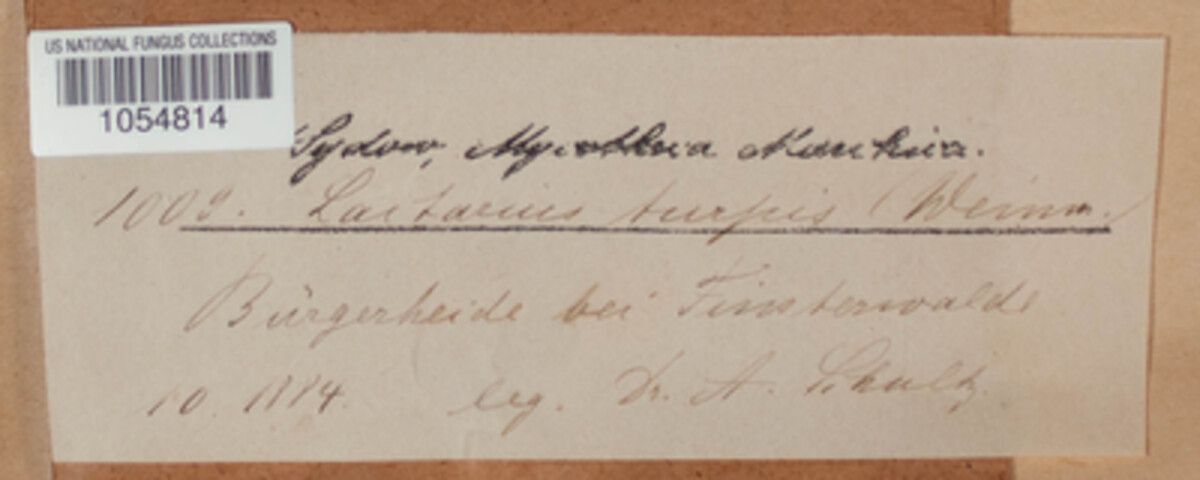 US NATIONAL FUNGUS COLLECTIONS
1054814
Sydow, Mycotheca Marchica.
1009. Lactarius turpis (Weinm.)
Bürgerheide bei Finsterwalde
10. 1884. leg. Dr. A. Schultz.